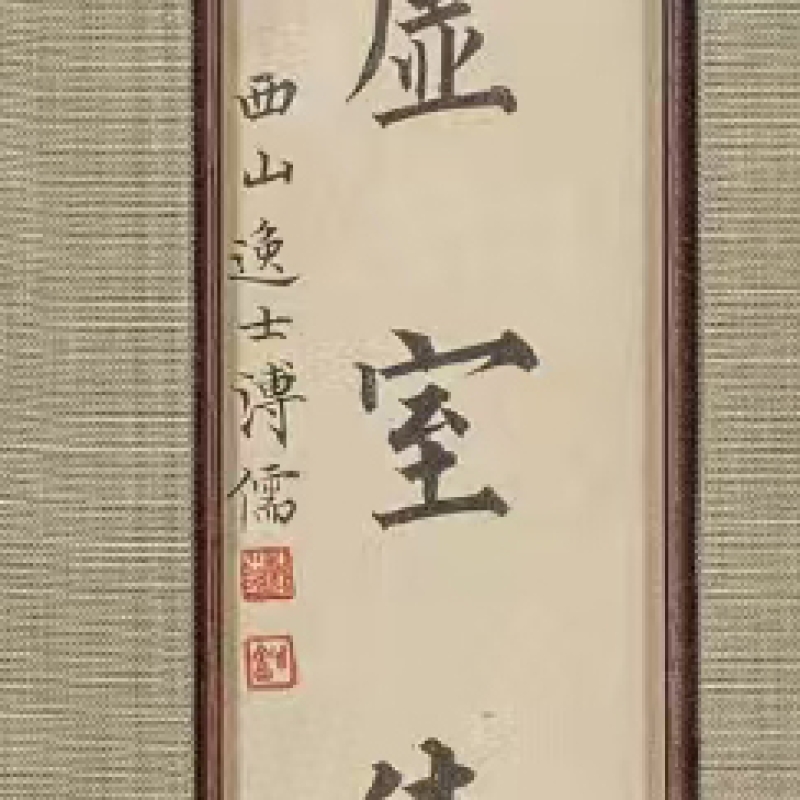 虛室
西山逸士溥儒